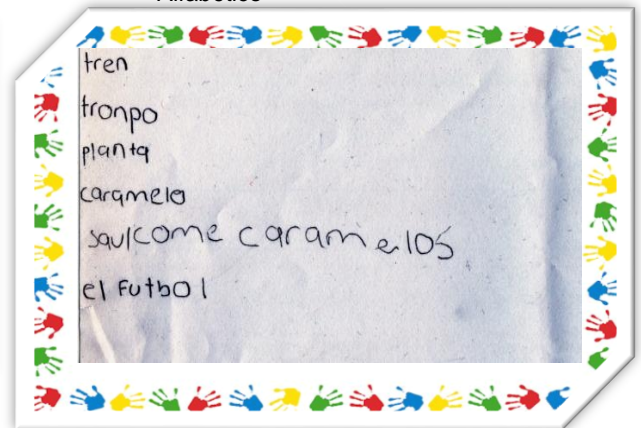 tren
tronpo
planta
caramelo
saulcome caramelos
el Futbol